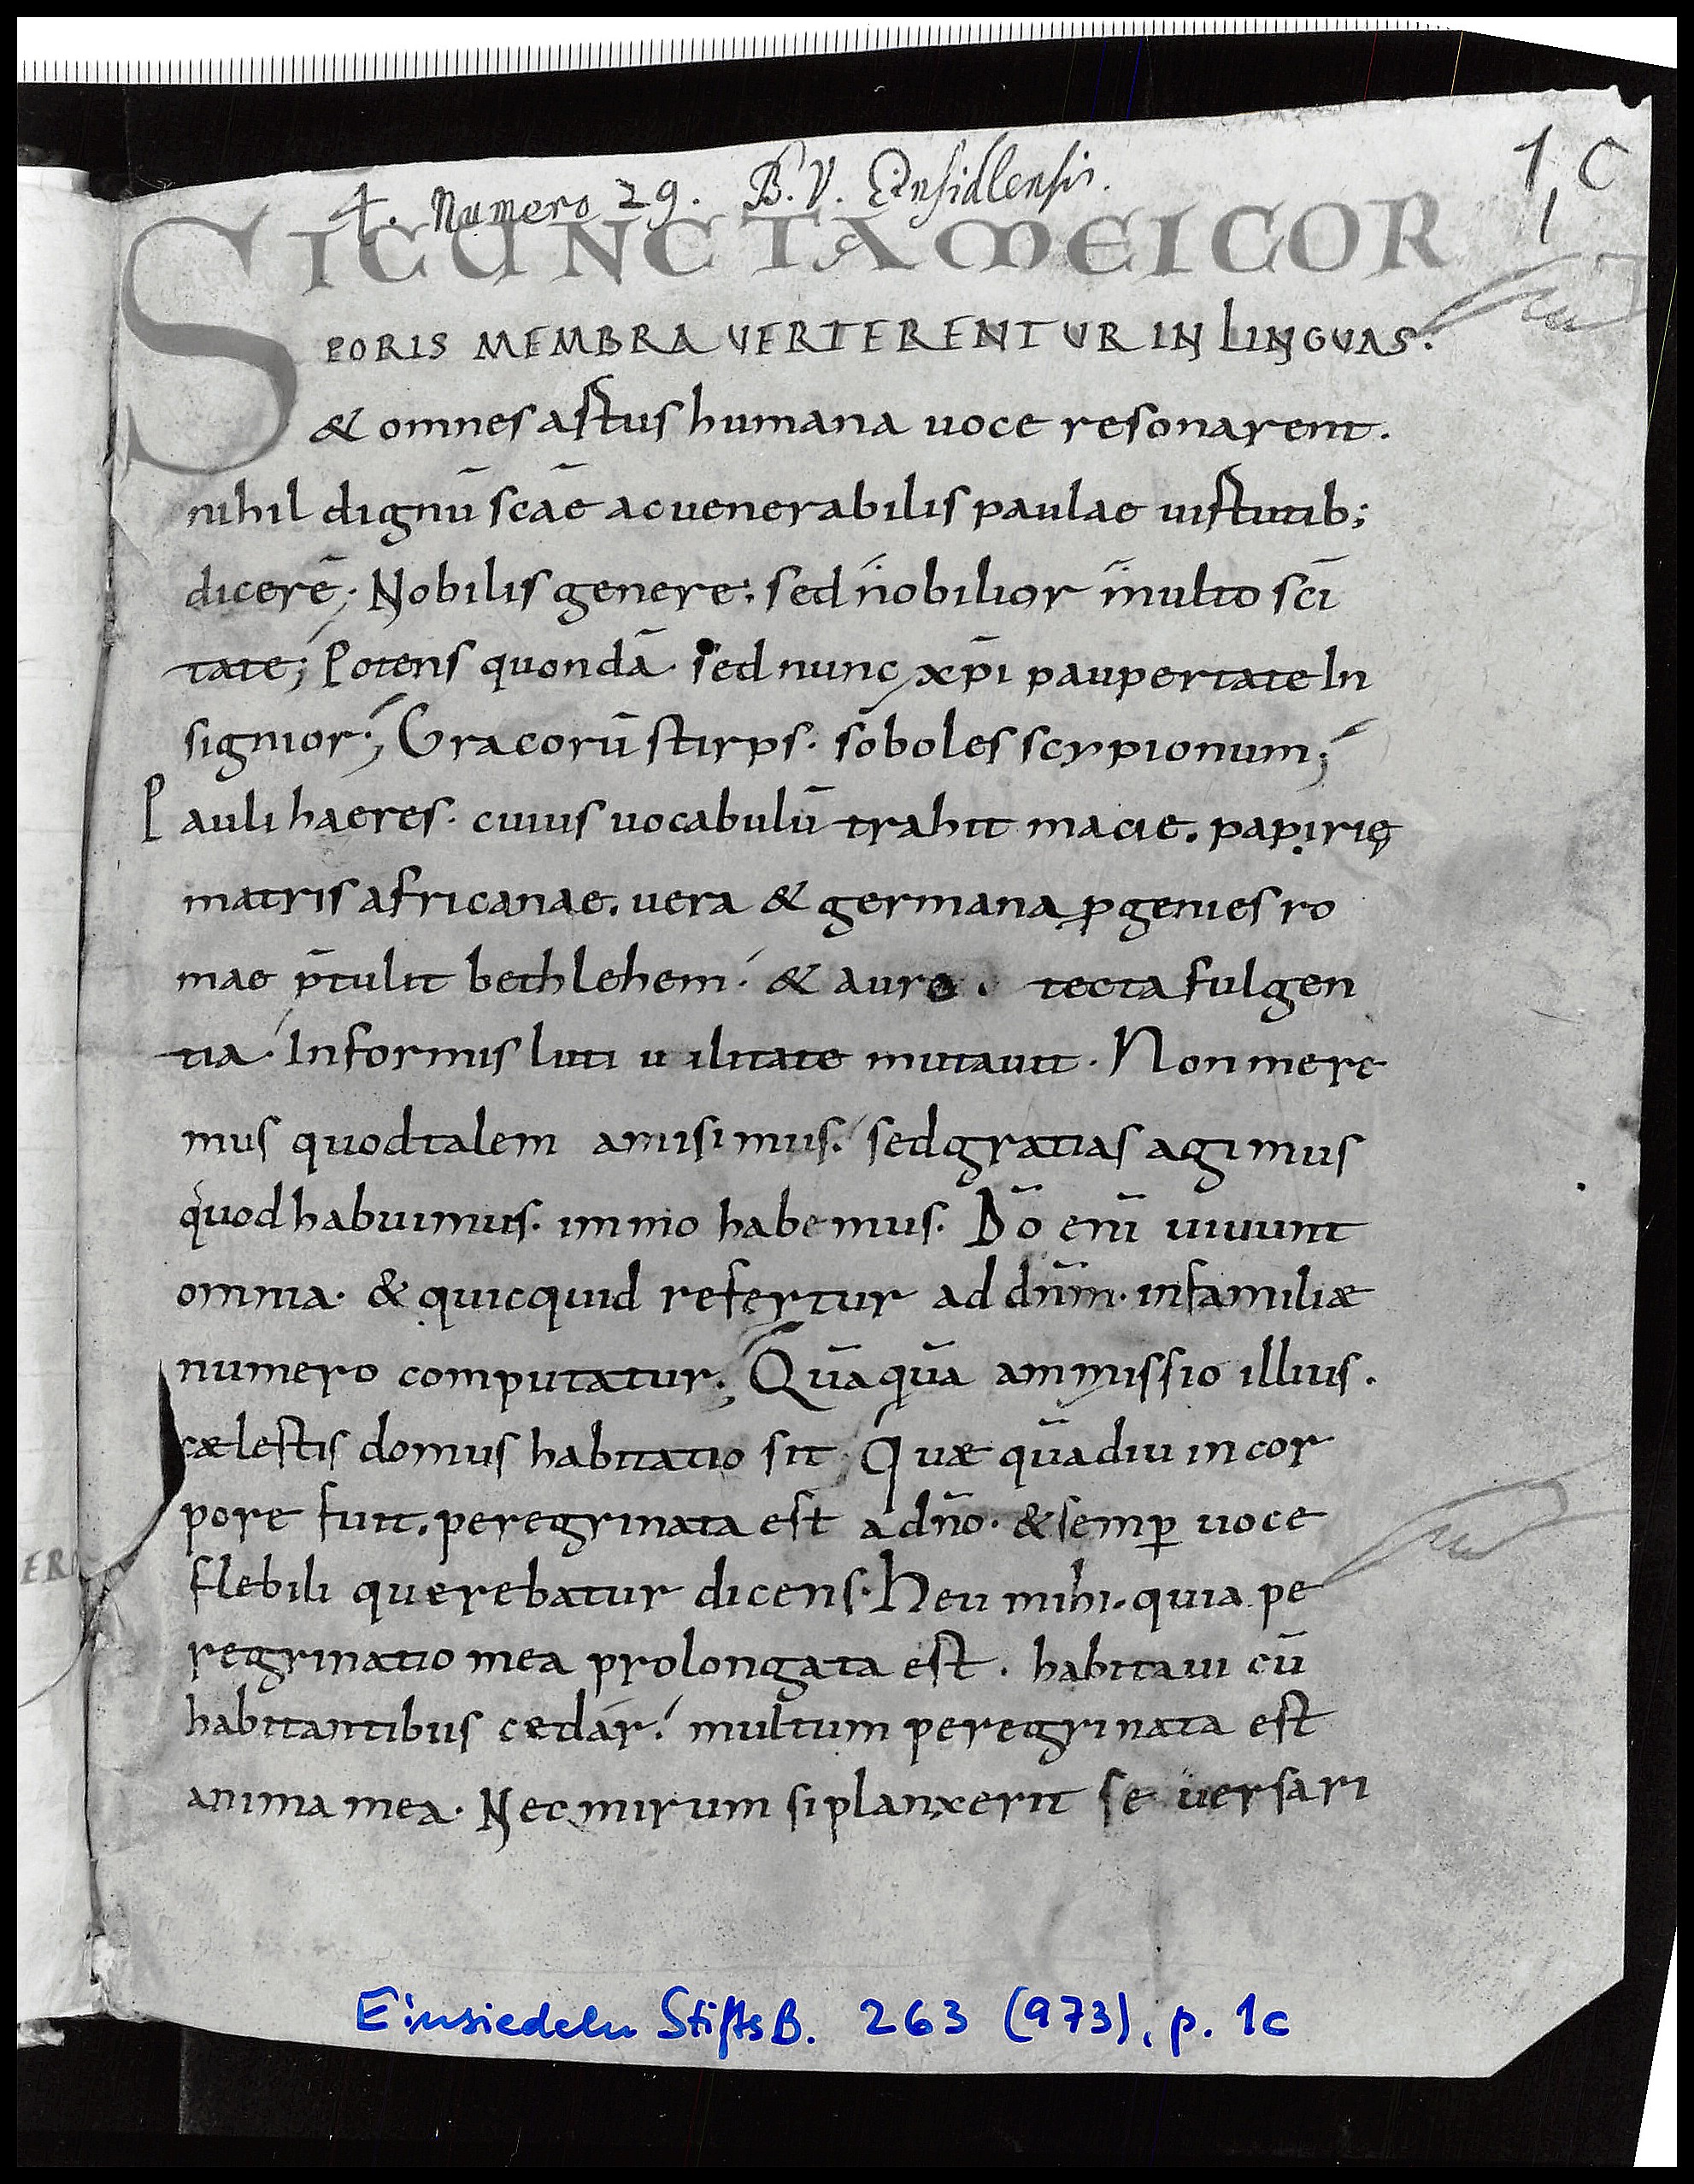 4. Numero 29. B. V. Einsidlensis.
1 C
1
SICUNCTA MEI COR
PORIS MEMBRA VERTERENTUR IN LINGVAS.
& omnes artus humana uoce resonarent.
nihil dignū scāe ac uenerabilis paulae uirtutib;
dicerē; Nobilis genere. sed nobilior multo sci
tate; Potens quondā. sed nunc xp̄i paupertate In
signior; Gracorū stirps. soboles scypionum;
Pauli haeres. cuius uocabulū trahit macie. papirie
matris africanae. uera & germana ꝓgenies ro
mae p̄tulit bethlehem. & auro. tecta fulgen
tia. Informis luti uilitate mutauit. Non mere
mus quod talem amisimus. sed gratias agimus
quod habuimus. immo habemus. Dō enī uiuunt
omnia. & quicquid refertur ad dnm̄. in familiæ
numero computatur; Quāquā ammissio illius.
cælestis domus habitatio sit; Quæ quādiu in cor
pore fuit. peregrinata est a dn̄o. & semꝑ uoce
flebili querebatur dicens. Heu mihi. quia pe
regrinatio mea prolongata est. habitaui cū
habitantibus cedár. multum peregrinata est
anima mea. Nec mirum si planxerit se uersari
ER
Einsiedeln StiftsB. 263 (973), p. 1c